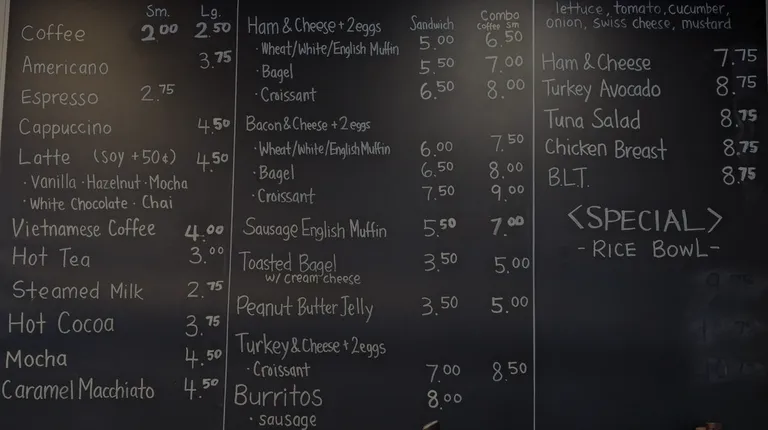 Sm. Lg.
Coffee 2.00 2.50
Americano 3.75
Espresso 2.75
Cappuccino 4.50
Latte (soy +50¢) 4.50
· Vanilla · Hazelnut · Mocha
· White Chocolate · Chai
Vietnamese Coffee 4.00
Hot Tea 3.00
Steamed Milk 2.75
Hot Cocoa 3.75
Mocha 4.50
Caramel Macchiato 4.50
Sandwich Combo
coffee sm
Ham & Cheese + 2 eggs
· Wheat/White/English Muffin 5.00 6.50
· Bagel 5.50 7.00
· Croissant 6.50 8.00
Bacon & Cheese + 2 eggs
· Wheat/White/English Muffin 6.00 7.50
· Bagel 6.50 8.00
· Croissant 7.50 9.00
Sausage English Muffin 5.50 7.00
Toasted Bagel 3.50 5.00
w/ cream cheese
Peanut Butter Jelly 3.50 5.00
Turkey & Cheese + 2 eggs
· Croissant 7.00 8.50
Burritos 8.00
· sausage
lettuce, tomato, cucumber,
onion, swiss cheese, mustard
Ham & Cheese 7.75
Turkey Avocado 8.75
Tuna Salad 8.75
Chicken Breast 8.75
B.L.T. 8.75
<SPECIAL>
- RICE BOWL -